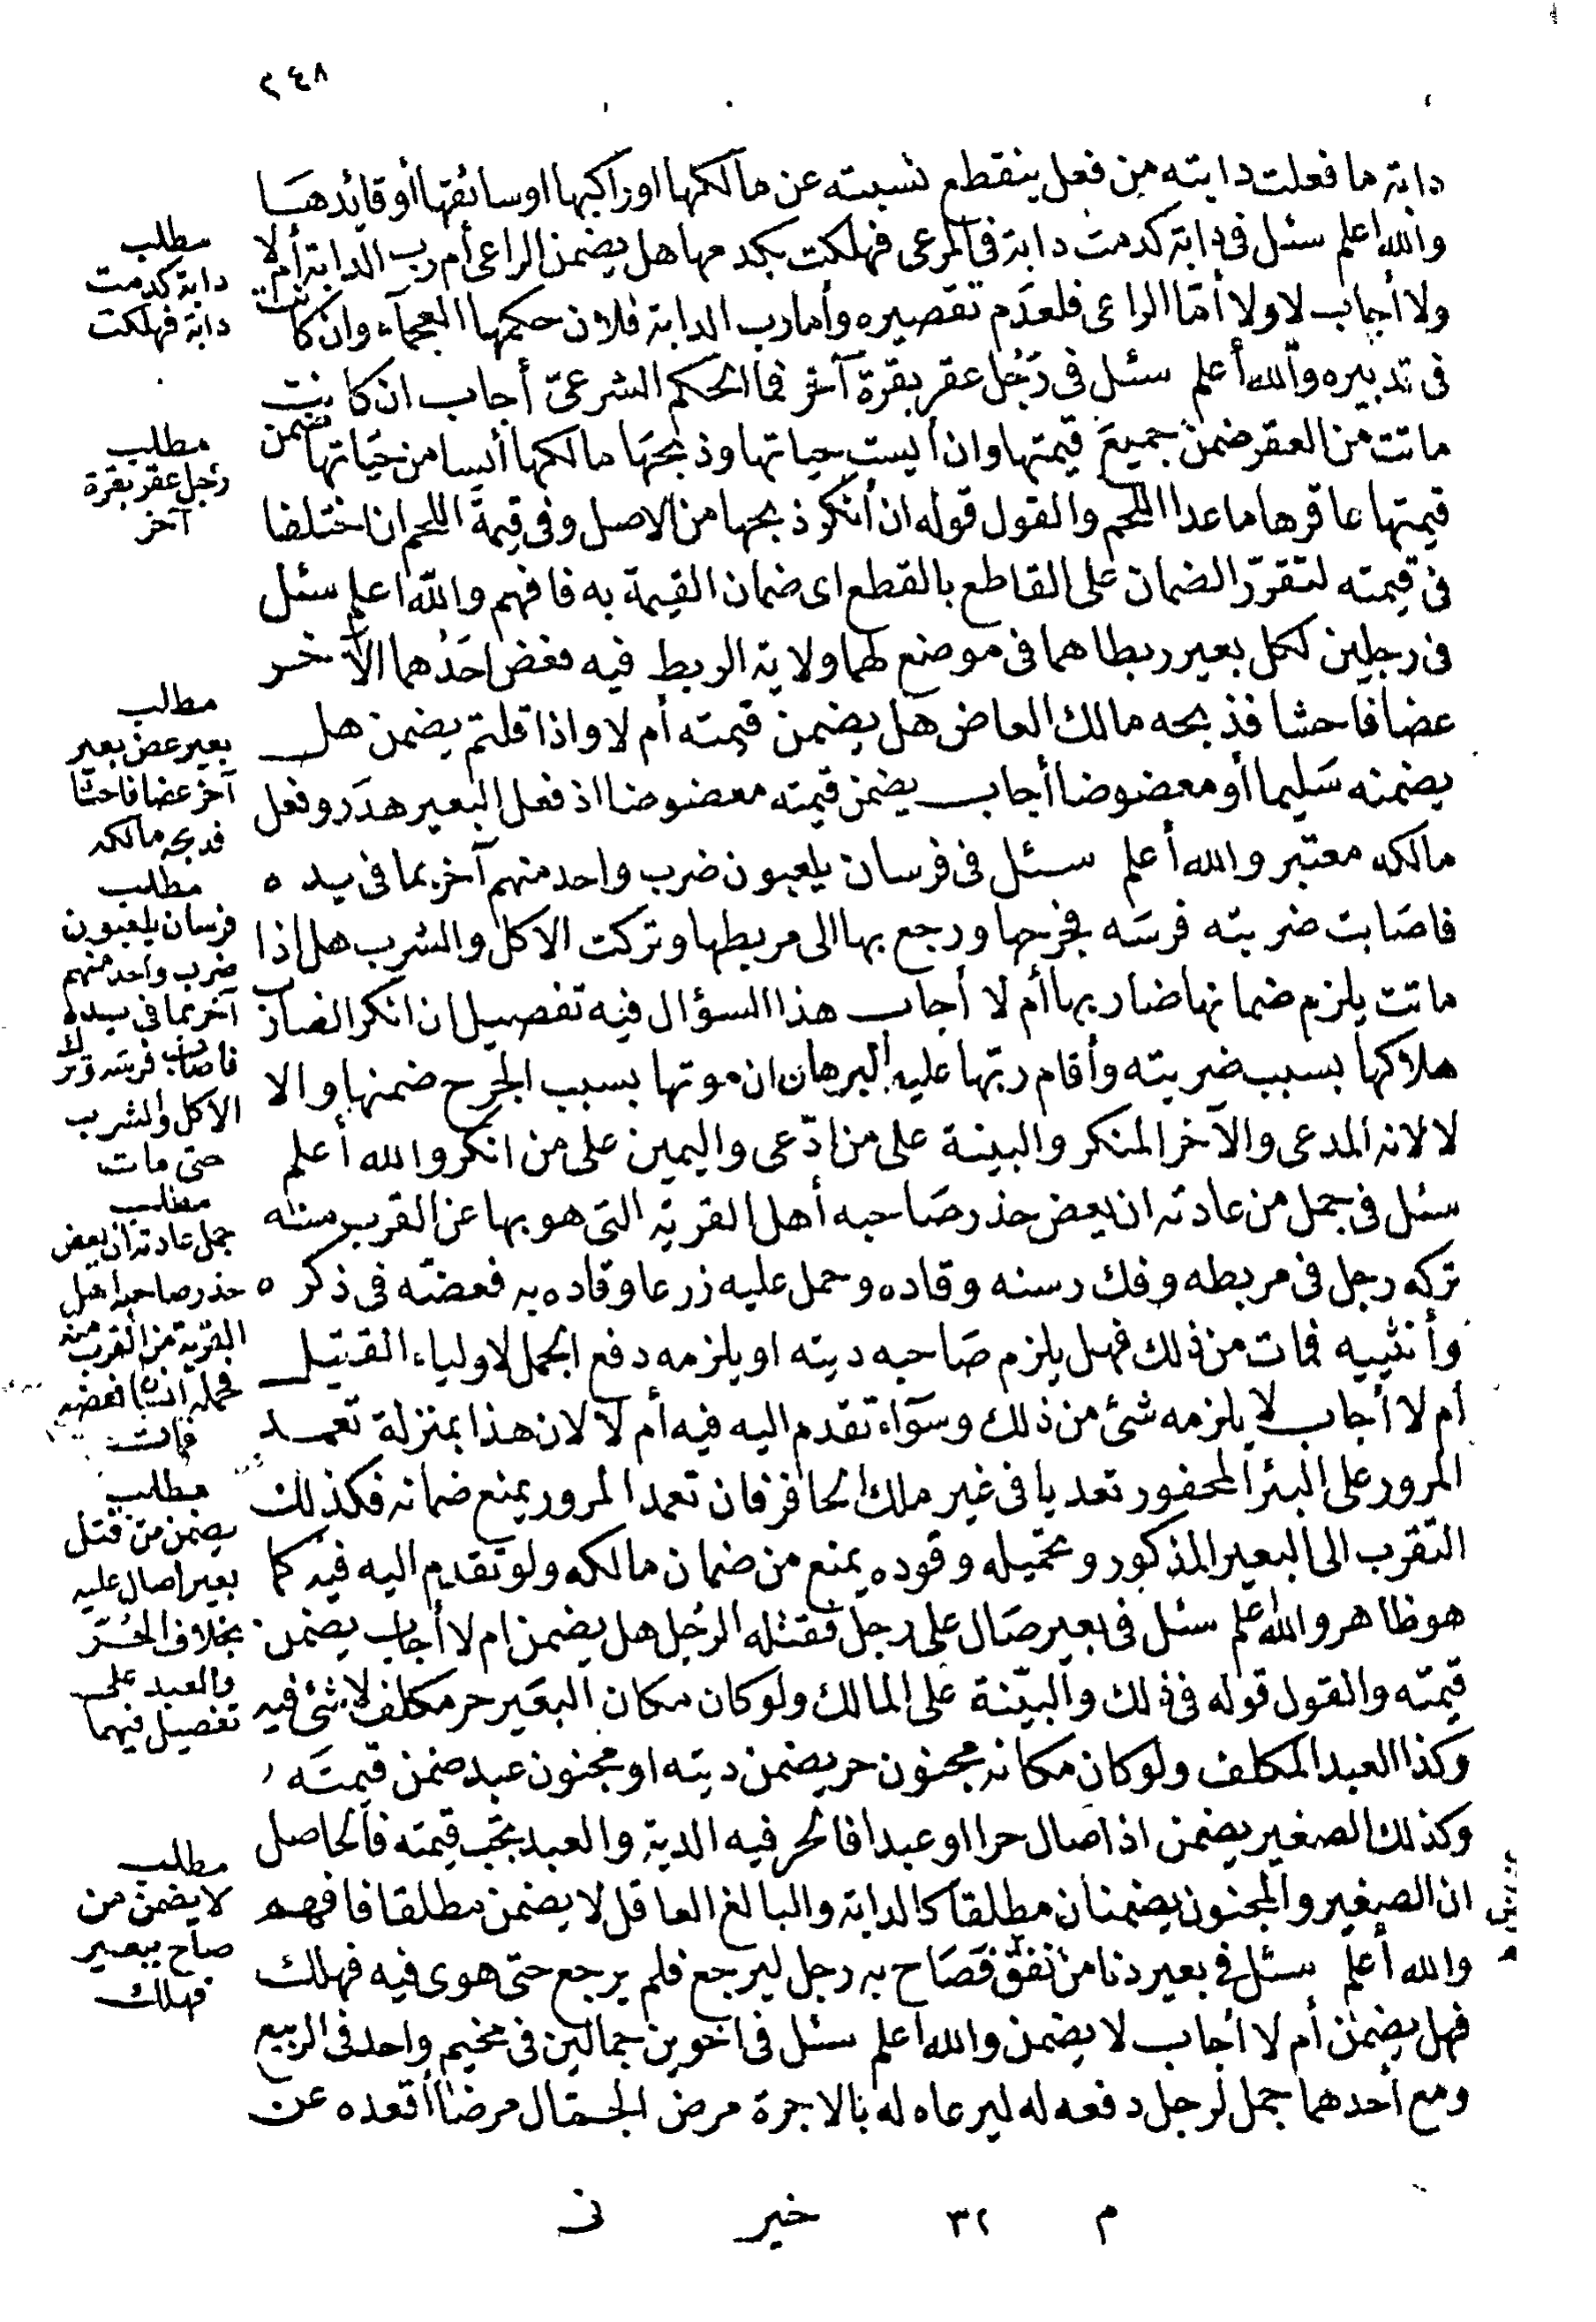 ٢٤٨
دابته ما فعلت دابته من فعل ينقطع نسبته عن مالكها او راكبها او سائقها أو قائدها
والله اعلم سئل فى دابة كدمت دابة فى المرعى فهلكت بكدمها هل يضمن الراعى أم رب الدابة أم لا
ولا أجاب لا ولا أما الراعى فلعدم تقصيره وأما رب الدابة فلان حكمها العجماء وان كانت
فى تدبيره والله أعلم سئل فى رجل عقر بقرة آخر فما الحكم الشرعى أجاب ان كانت
ماتت من العقر ضمن جميع قيمتها وان أيست حياتها وذبحها مالكها أيسا من حياتها ضمن
قيمتها عاقرها ما عدا اللحم والقول قوله ان أنكر ذبحها من الاصل وفى قيمة اللحم ان اختلفا
فى قيمته لتقرر الضمان على القاطع بالقطع اى ضمان القيمة به فافهم والله اعلم سئل
فى رجلين لكل بعير ربطاهما فى موضع لهما ولاية الربط فيه فعض احدهما الآخر
عضا فاحشا فذبحه مالك العاض هل يضمن قيمته أم لا واذا قلتم يضمن هل
يضمنه سليما أو معضوضا أجاب يضمن قيمته معضوضا اذ فعل البعير هدر وفعل
مالكه معتبر والله أعلم سئل فى فرسان يلعبون ضرب واحد منهم آخر بما فى يده
فاصابت ضربته فرسه فجرحها ورجع بها الى مربطها وتركت الاكل والشرب هل اذا
ماتت يلزم ضمانها ضاربها أم لا أجاب هذا السؤال فيه تفصيل ان انكر الضارب
هلاكها بسبب ضربته وأقام ربها عليه البرهان ان موتها بسبب الجرح ضمنها والا
لا لانه المدعى والآخر المنكر والبينة على من ادعى واليمين على من انكر والله أعلم
سئل فى جمل من عادته ان يعض حذر صاحبه أهل القرية التى هو بها عن القرب منه
تركه رجل فى مربطه وفك رسنه وقاده وحمل عليه زرعا وقاده به فعضه فى ذكره
وأنثييه فمات من ذلك فهل يلزم صاحبه ديته او يلزمه دفع الجمل لاولياء القتيل
أم لا أجاب لا يلزمه شئ من ذلك وسوآء تقدم اليه فيه أم لا لان هذا بمنزلة تعمد
المرور على البئر المحفور تعديا فى غير ملك الحافر فان تعمد المرور يمنع ضمانه فكذلك
التقرب الى البعير المذكور وتحميله وقوده يمنع من ضمان مالكه ولو تقدم اليه فيه كما
هو ظاهر والله اعلم سئل فى بعير صال على رجل فقتله الرجل هل يضمن ام لا أجاب يضمن
قيمته والقول قوله فى ذلك والبينة على المالك ولو كان مكان البعير حر مكلف لا شئ فيه
وكذا العبد المكلف ولو كان مكانه مجنون حر يضمن ديته او مجنون عبد ضمن قيمته
وكذلك الصغير يضمن اذا صال حرا او عبدا فالحر فيه الدية والعبد تجب قيمته فالحاصل
ان الصغير والمجنون يضمنان مطلقا كالدابة والبالغ العاقل لا يضمن مطلقا فافهم
والله أعلم سئل فى بعير دنا من نفق فصاح به رجل ليرجع فلم يرجع حتى هوى فيه فهلك
فهل يضمن أم لا أجاب لا يضمن والله اعلم سئل فى اخوين جمالين فى مخيم واحد فى الربيع
ومع أحدهما جمل لرجل دفعه له ليرعاه له بالاجرة مرض الجمال مرضا أقعده عن
م ٣٢ خير نى
مطلب
دابة كدمت
دابة فهلكت
مطلب
رجل عقر بقرة
آخر
مطالب
بعير عض بعير
آخر عضا فاحشا
فذبحه مالكه
مطلب
فرسان يلعبون
ضرب واحد منهم
آخر بما فى يده
فاصاب فرسه وترك
الاكل والشرب
حتى مات
مطلب
جمل عادته أن يعض
حذر صاحبه اهل
القرية من القرب منه
فحمله انسان فعضه
فمات
مطلب
يضمن من قتل
بعيرا صال عليه
بخلاف الحر
والعبد على
تفصيل فيهما
مطلب
لا يضمن من
صاح ببعير
فهلك